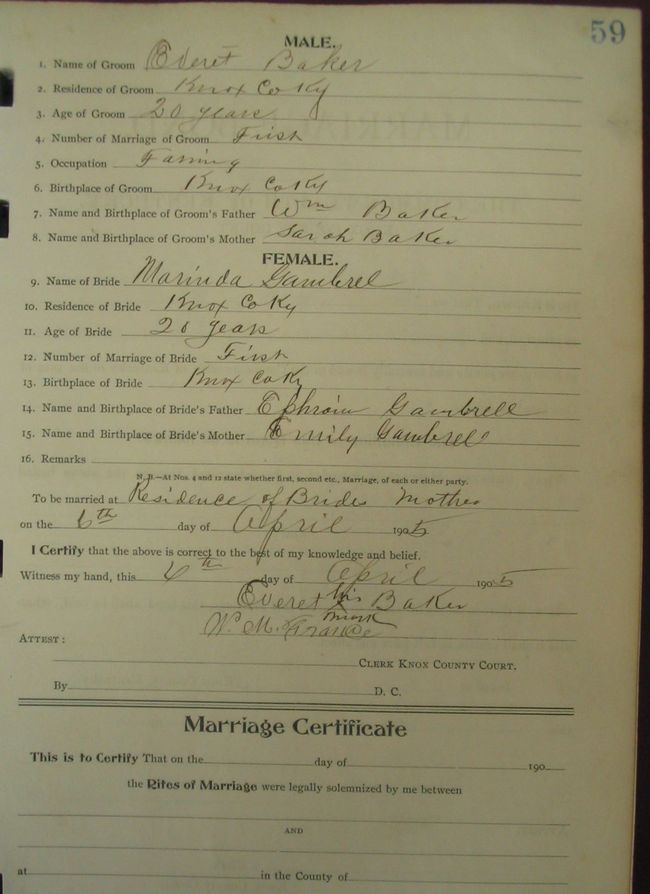 59
MALE.
1. Name of Groom Everet Baker
2. Residence of Groom Knox Co Ky
3. Age of Groom 20 years
4. Number of Marriage of Groom First
5. Occupation Faming
6. Birthplace of Groom Knox Co Ky
7. Name and Birthplace of Groom's Father Wm Baker
8. Name and Birthplace of Groom's Mother Sarah Baker
FEMALE.
9. Name of Bride Marinda Gambrel
10. Residence of Bride Knox Co Ky
11. Age of Bride 20 years
12. Number of Marriage of Bride First
13. Birthplace of Bride Knox Co Ky
14. Name and Birthplace of Bride's Father Ephraim Gambrell
15. Name and Birthplace of Bride's Mother Emily Gambrell
16. Remarks
N. B.—At Nos. 4 and 12 state whether first, second etc., Marriage, of each or either party.
To be married at Residence of Brides Mother
on the 6th day of April 1905
I Certify that the above is correct to the best of my knowledge and belief.
Witness my hand, this day of April 1905
Everet his Baker
mark
W. M.
ATTEST:
CLERK KNOX COUNTY COURT.
By D. C.
Marriage Certificate
This is to Certify That on the day of 190
the Rites of Marriage were legally solemnized by me between
AND
at in the County of